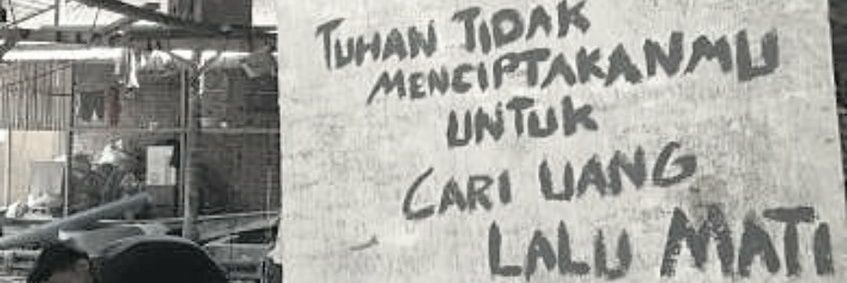 TUHAN TIDAK
MENCIPTAKANMU
UNTUK
CARI UANG
LALU MATI